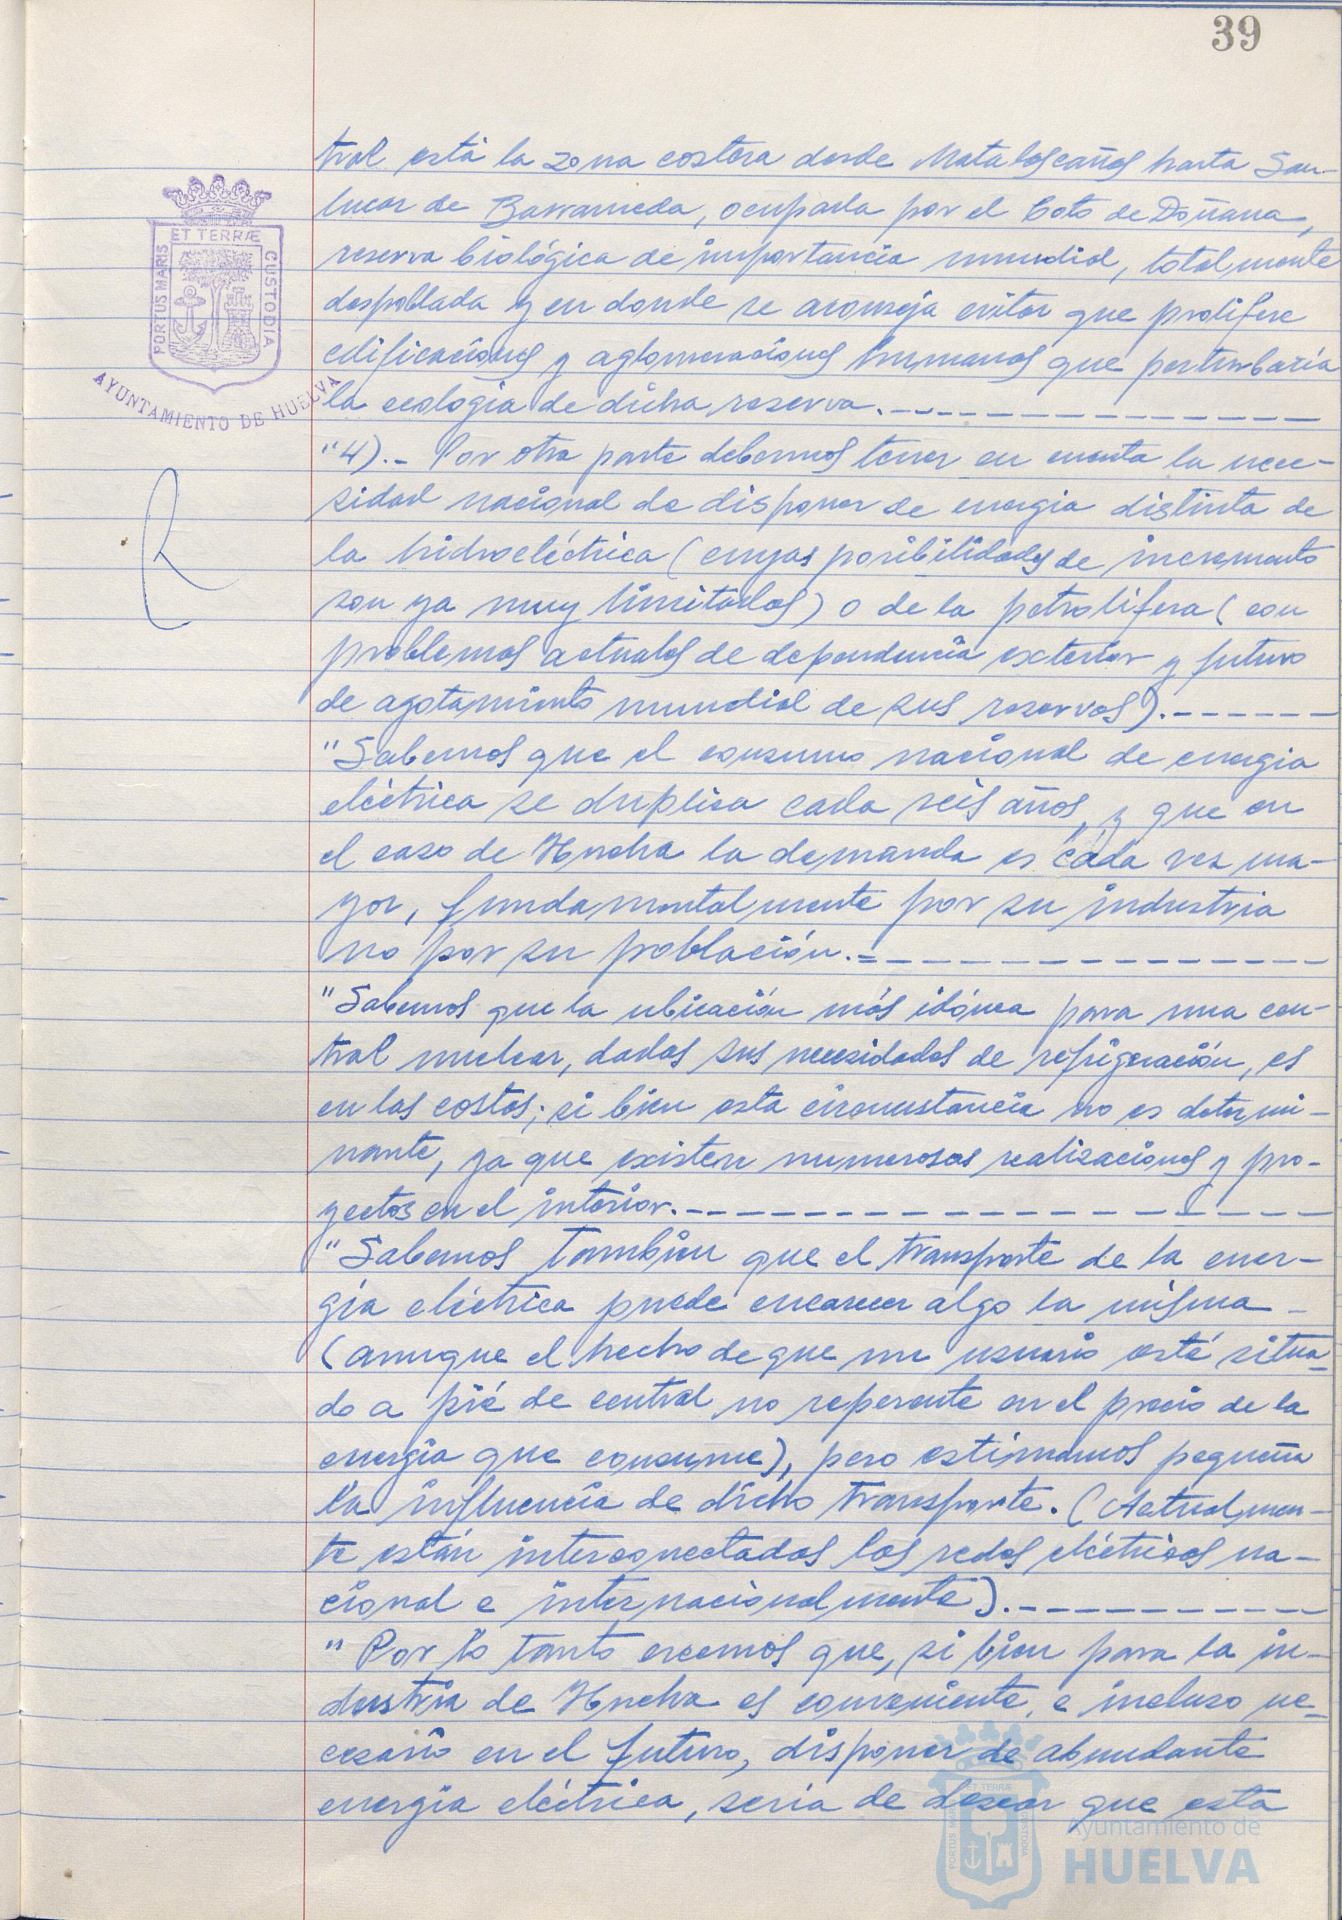 39
tral está la zona costera desde Matalascañas hasta San-
lucar de Barrameda, ocupada por el Coto de Doñana,
reserva biológica de importancia mundial, totalmente
despoblada y en donde se aconseja evitar que prolifere
edificaciones y aglomeraciones humanas que perturbaría
la ecologia de dicha reserva.
"4).- Por otra parte debemos tener en cuenta la nece-
sidad nacional de disponer de energia distinta de
la hidroeléctrica (cuyas posibilidades de incremento
son ya muy limitadas) o de la petrolifera (con
problemas actuales de dependencia exterior y futuro
de agotamiento mundial de sus reservas).
"Sabemos que el consumo nacional de energia
eléctrica se duplica cada seis años, y que en
el caso de Huelva la demanda es cada vez ma-
yor, fundamentalmente por su industria
no por su población.
"Sabemos que la ubicación más idónea para una cen-
tral nuclear, dadas sus necesidades de refrigeración, es
en las costas; si bien esta circunstancia no es determi-
nante, ya que existen numerosas realizaciones y pro-
yectos en el interior.
"Sabemos tambien que el transporte de la ener-
gia eléctrica puede encarecer algo la misma
(aunque el hecho de que un usuario esté situa-
do a pié de central no repercute en el precio de la
energia que consume), pero estimamos pequeña
la influencia de dicho transporte. (Actualmen-
te están interconectadas las redes eléctricas na-
cional e internacionalmente).
"Por lo tanto creemos que, si bien para la in-
dustria de Huelva es conveniente, e incluso ne-
cesario en el futuro, disponer de abundante
energia eléctrica, seria de desear que esta
PORTUS MARIS ET TERRÆ CUSTODIA
AYUNTAMIENTO DE HUELVA
PORTUS MARIS ET TERRÆ CUSTODIA
Ayuntamiento de
HUELVA